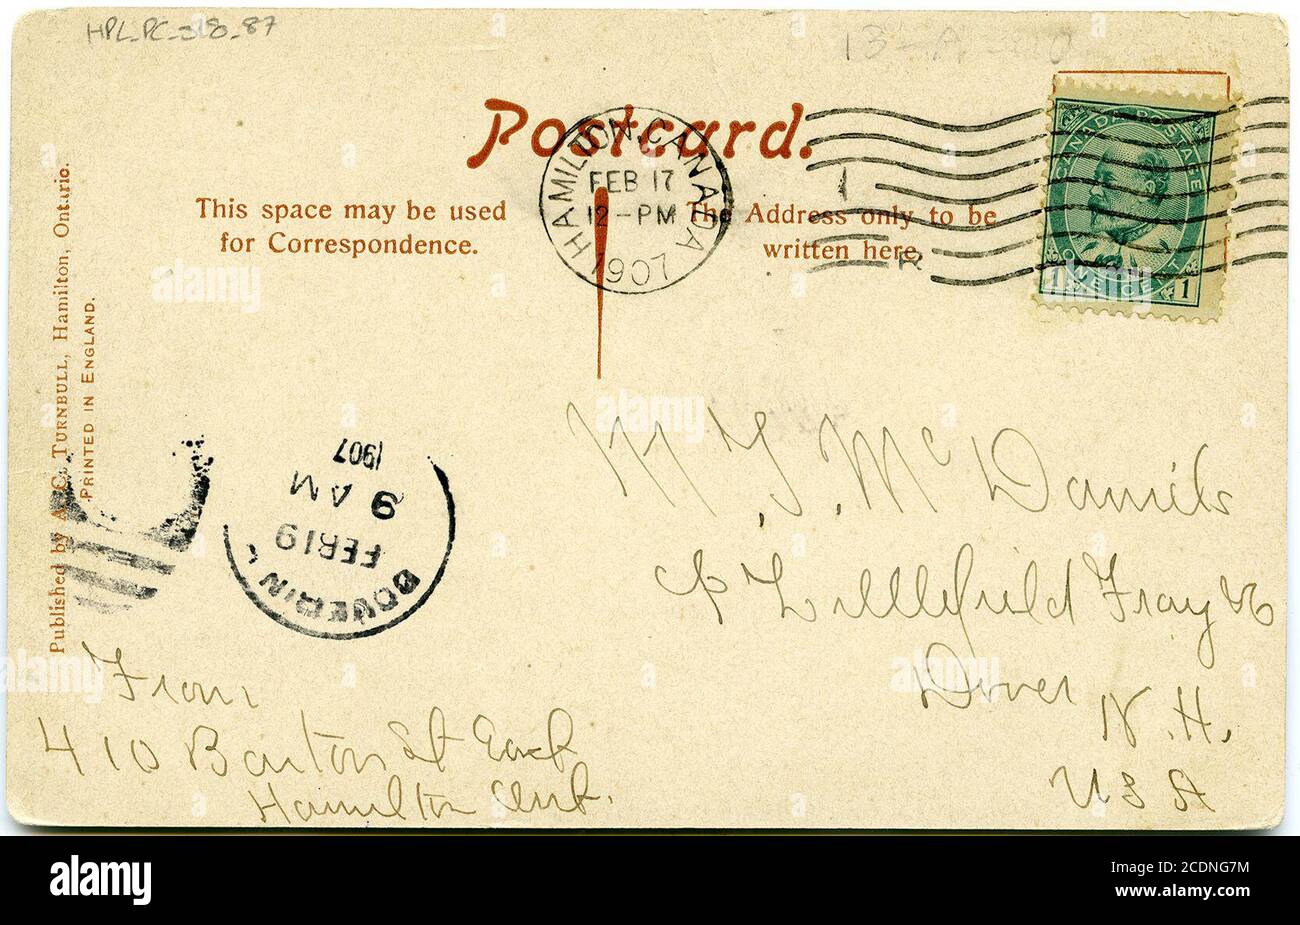 HPL_PC_318_87
13-A
Postcard.
HAMILTON, CANADA
FEB 17
12-PM
1907
CANADA POSTAGE
ONE CENT
1 1
This space may be used
for Correspondence.
The Address only to be
written here.
R
Published by A. C. TURNBULL, Hamilton, Ontario.
PRINTED IN ENGLAND.
1907
9 AM
FEB 19
M McDaniels
Littlefield Fray
Dover
N.H.
USA
From
410 Barton St East
Hamilton Ont.
alamy
Image ID: 2CDNG7M
www.alamy.com